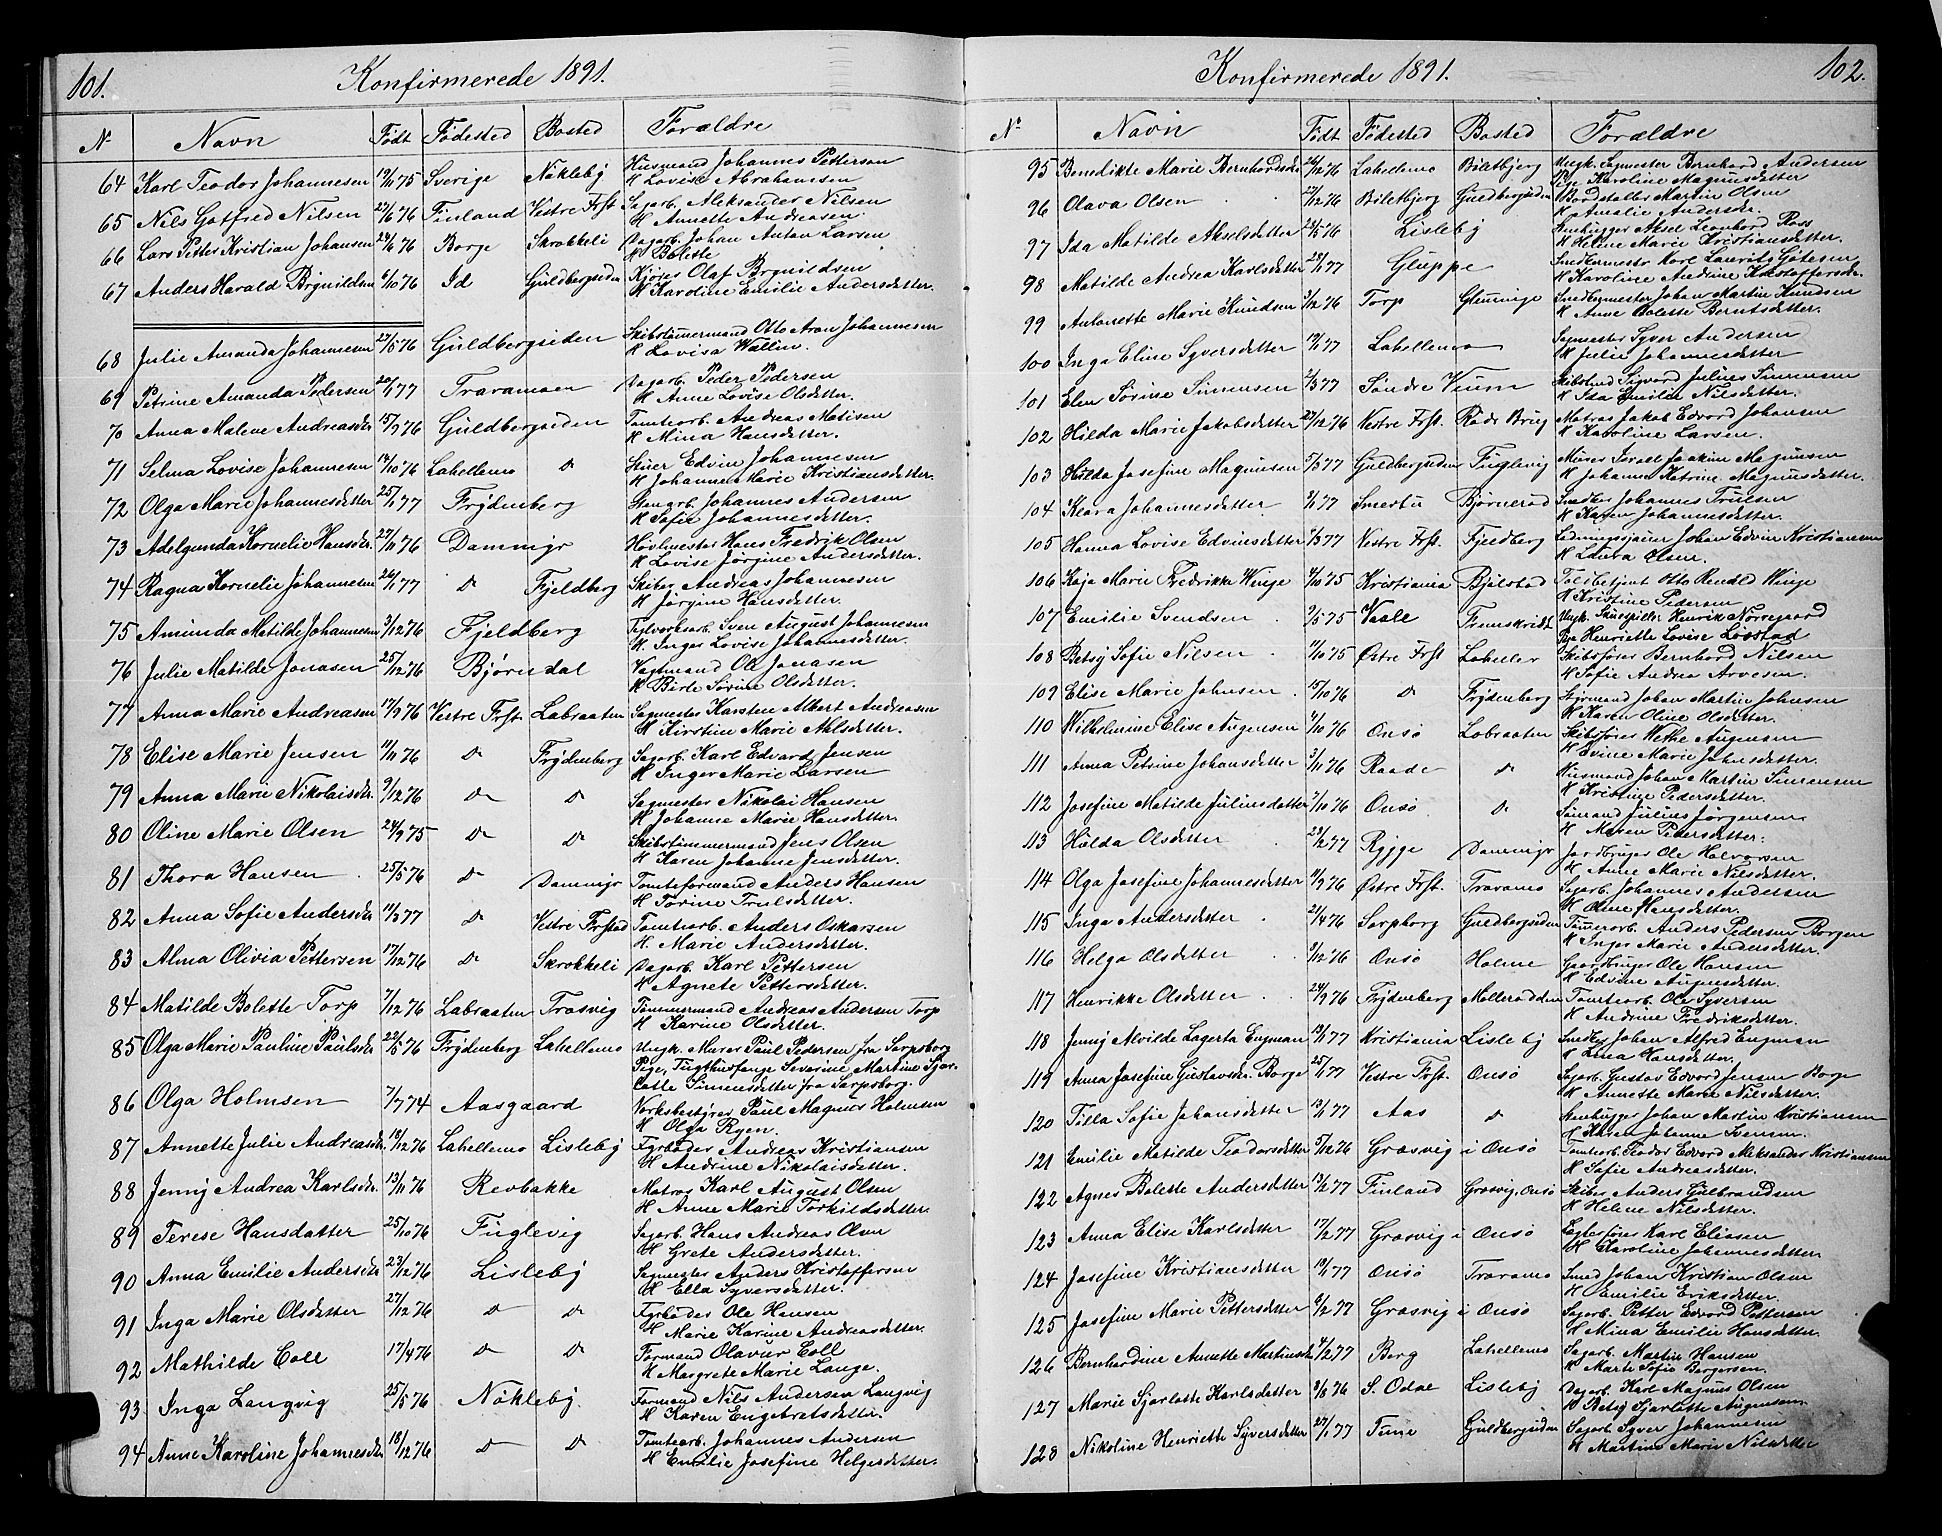 101.
Konfirmerede 1891.
Nr Navn Født Fødested Bosted Forældre
64 Karl Teodor Johannesen 19/11 75 Sverige Nøkleby Husmand Johannes Petterson
H Lovise Abrahamsen
65 Nils Gotfred Nilsen 23/6 76 Finland Vestre Frst Sagarb. Aleksander Nilsen
H Annette Andreasen.
66 Lars Petter Kristian Johansen 29/6 76 Borge Skrokkeli Dagarb. Johan Anton Larsen
H Bolette
67 Anders Harald Brynildsen 6/10 76 Id Guldbergsiden Kjører Olaf Brynildsen
H Karoline Emilie Andersdatter.
68 Julie Amanda Johannesen 27/5 76 Guldbergsiden Skibstømermand Otto Aron Johannesen
H Lovisa Wallin.
69 Petrine Amanda Pedersen 20/1 77 Traramoen Dagarb. Peder Pedersen
H Anne Lovise Olsdetter.
70 Anna Malene Andreasdr 15/9 76 Guldbergsiden Tomtearb. Andreas Matisen
H Mina Hansdetter.
71 Selma Lovise Johannesen 14/10 76 Lahellemo do Skier Edvin Johannesen
H Johanne Marie Kristiansdetter.
72 Olga Marie Johannesdetter 25/1 77 Frydenberg Stenarb. Johannes Andersen
H Sofie Johannesdetter.
73 Adelgunda Kornelie Hansdr. 27/10 76 Dammyr Høvlmester Hans Fredrik Olsen
H Lovise Jørgine Andersdetter.
74 Ragna Kornelie Johannesen 26/1 77 do Fjeldberg Skiber Andreas Johannesen
H Jørgine Hansdetter.
75 Aminda Matilde Johannesen 3/12 76 Fjeldberg Teglverksarb. Sven August Johannesen
H. Inger Lovise Johannesdetter.
76 Julie Matilde Jonasen 25/12 76 Bjørndal Vegtmand Ole Jonasen
H Birte Sørine Olsdetter.
77 Anna Marie Andreasen 17/9 76 Vestre Frst Labraaten Sagmester Karsten Albert Andreasen
H Kirstine Marie Nilsdetter.
78 Elise Marie Jensen 11/11 76 do Frydenberg Sagarb. Karl Edvard Jensen
H Inger Marie Larsen
79 Anna Marie Nikolaisdr. 9/12 76 do do Sagmester Nikolai Hansen
H Johanne Marie Hansdetter.
80 Oline Marie Olsen 24/9 75 do do Skibstimmermand Jens Olsen
H Karen Johanne Jensdetter.
81 Thora Hansen 25/5 76 do Dammyr Tomteformand Anders Hansen
H Torine Trulsdetter.
82 Anna Sofie Andersdr 11/3 77 do Vestre Frstad Tomtearb. Anders Oskarsen
H. Marie Andersdetter.
83 Alma Olivia Pettersen 17/12 76 do Skrokkeli Dagarb. Karl Pettersen
H Agnete Pettersdetter.
84 Matilde Bolette Torp 7/12 76 Labraaten Trosvig Tømmermand Andreas Andersen Torp
H Karine Olsdetter.
85 Olga Marie Pauline Paulsdr 22/5 76 Frydenberg Lahellemo Ungk. Murer Paul Pedersen fra Sarpsborg
Pige, Tugthusfange Severine Martine Sjar-
lotte Simensdetter fra Sarpsborg.
86 Olga Holmsen 7/7 74 Aasgaard Verksbestyrer Paul Magnus Holmsen
H Olga Ryen.
87 Annette Julie Andreasdr. 18/12 76 Lahellemo Lisleby Fyrbøder Andreas Kristiansen
H Andrine Nikolaisdetter.
88 Jenny Andrea Karlsdr. 13/11 76 Revbakke Matros Karl August Olsen
H Anne Marie Torkildsdetter.
89 Terese Hansdatter 25/10 76 Fuglevig Sagarb. Hans Andreas Olsen
H Grete Andersdetter.
90 Anna Emilie Andersdr 23/12 76 Lisleby Sagmester Anders Kristoffersen
H Ella Syversdetter.
91 Inga Marie Olsdetter 27/12 76 do do Fyrbøder Ole Hansen
H Marie Karine Andreasdetter.
92 Mathilde Coll 17/4 76 do do Formand Olavur Coll
H Margrete Marie Lange.
93 Inga Langvig 25/5 76 Nøkleby. Formand Nils Andersen Langvig
H Karen Engebretsdetter.
94 Anne Karoline Johannesdr 18/12 76 do do Tomtearb. Johannes Andersen
H Emilie Josefine Helgesdetter.
Konfirmerede 1891.
102.
Nr Navn Født Fødested Bosted Forældre
95 Benedikte Marie Bernhardsdr 26/12 76 Lahellemo Biletbjerg Ungk. Sagmester Bernhard Andersen
Pige Karoline Magnusdetter
96 Olava Olsen 22/12 76 Biletbjerg Guldbergsiden Bordstabler Martin Olsen
H. Amalie Andersdr.
97 Ida Matilde Akselsdetter 24/5 76 Lisleby Stenhugger Aksel Leonhard Roos
H Helene Marie Kristiansdetter.
98 Matilde Andrea Karlsdetter 29/1 77 Gluppe Snedkermestr Karl Laurits Gøtesen
H Karoline Andrine Kristoffersdr.
99 Antonette Marie Knudsen 3/12 76 Torp Glemminge Snedkermester Johan Martin Knudsen
H Anne Bolette Berntsdetter.
100 Inga Eline Syversdetter 19/1 77 Lahellemo Sagmester Syver Andersen
H Julie Johannesdetter
101 Elen Sørine Simensen 2/3 77 Søndre Veum Skibstømd Sigvard Julius Simensen
H Ida Emilie Nilsdetter.
102 Hilda Marie Jakobsdetter 27/12 76 Vestre Frst. Røde Brug Matros Jakob Edvard Johansen
H Karoline Larsen.
103 Hilda Josefine Magnusen 5/3 77 Guldbergsiden Fuglevig Murer Joakim Magnusen
H Johanne Katrine Magnusdetter.
104 Klara Johannesdetter 3/1 77 Smertu Bjørnerød Snedker Johannes Trulsen
H Karen Johannesdetter.
105 Hanna Lovise Edvinsdetter 4/3 77 Vestre Frst. Fjeldberg Ladningsejauer Johan Edvin Kristiansen
H Laura Olsen.
106 Kaja Marie Fredrikke Winge 4/10 75 Kristiania Bjølstad Toldbetjent Otto Rendld Winge
H Kristine Pedersen
107 Emilie Svendsen 9/5 75 Vaale Fremskridt Ungk. Skuespiller Henrik Nørregaard
Pige Henriette Lovise Losstad
108 Betsy Sofie Nilsen 11/10 75 Østre Frst Lahellen Skibsfører Bernhard Nilsen
H Sofie Andrea Arvesen.
109 Elise Marie Johnsen 15/10 76 do Frydenberg Styrmand Johan Martin Johnsen
H Karen Oline Olsdetter.
110 Wilhelmine Elise Augensen 4/10 76 Onsø Labraaten Skibsfører Methe Augensen
H Evine Marie Johnsdetter.
111 Anna Petrine Johansdetter 3/11 76 Raade do Husmand Johan Martin Simensen
H Kristine Pedersdetter.
112 Josefine Matilde Juliusdatter 7/10 76 Onsø do Sømand Julius Jørgensen
H Maren Pedersdetter.
113 Hilda Olsdetter 23/2 77 Rygge Dammyr Jordbruger Ole Halvorsen
H Anne Marie Nilsdetter.
114 Olga Josefine Johannesdetter 11/9 76 Østre Frst. Traramo Sagarb. Johannes Andersen
H Oline Hansdetter.
115 Inga Andersdetter 21/4 76 Sarpborg Guldbergsiden Tømmerarb. Anders Pedersen Borgen
H Inger Marie Andersdetter.
116 Helga Olsdetter 9/12 76 Onsø Holme Gaardbruger Ole Hansen
H Edvine Augensdetter.
117 Henrikke Olsdetter 24/9 76 Frydenberg Mellerødden Tomtearb. Ole Syversen
H Andrine Fredriksdetter.
118 Jenny Alvilde Lagerta Engman 13/1 77 Kristiania Lisleby Snedker Johan Alfred Engman
H Lina Hansdetter.
119 Anna Josefine Gustavsdr. Borge 25/1 77 Vestre Frst. Onsø Sagarb. Gustav Edvard Jensen Borge
H Annette Marie Nilsdetter.
120 Tilla Sofie Johansdetter 13/1 77 Aas do Stenhugger Johan Martin Kristiansen
H Karen Johanne Iversen.
121 Emilie Matilde Teodorsdetter 5/12 76 Græsvig i Onsø Tomtearb. Teodor Edvard Aleksander Kristiansen
H Sofie Andreasdetter.
122 Agnes Bolette Andersdetter 13/2 77 Finland Græsvig, Onsø Skiber Anders Gulbrandsen
H Helene Nilsdetter.
123 Anna Elise Karlsdetter 17/2 77 Græsvig i Onsø Lægterfører Karl Eliasen
H Karoline Johannesdetter.
124 Josefine Kristiansdetter 19/1 77 Onsø Traramo Smed Johan Kristian Olsen
H Emilie Eriksdetter.
125 Josefine Marie Pettersdetter 6/2 77 Græsvig i Onsø Sagarb. Petter Edvard Pettersen
H Mina Emilie Hansdetter.
126 Bernhardine Annette Martinsdr 4/2 77 Berg Lahellemo Sagarb. Martin Hansen
H Marte Sofie Bergersen.
127 Marie Sjarlotte Karlsdatter 8/8 76 S. Odal Lisleby Dagarb. Karl Magnus Olsen
H Betsy Sjarlotte Augensen.
128 Nikoline Henriette Syversdetter 27/1 77 Tune Guldbergsiden Sagarb. Syver Johannesen
H Martine Marie Nilsdetter